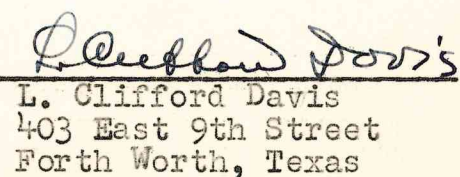 L. Clifford Davis
L. Clifford Davis
403 East 9th Street
Forth Worth, Texas